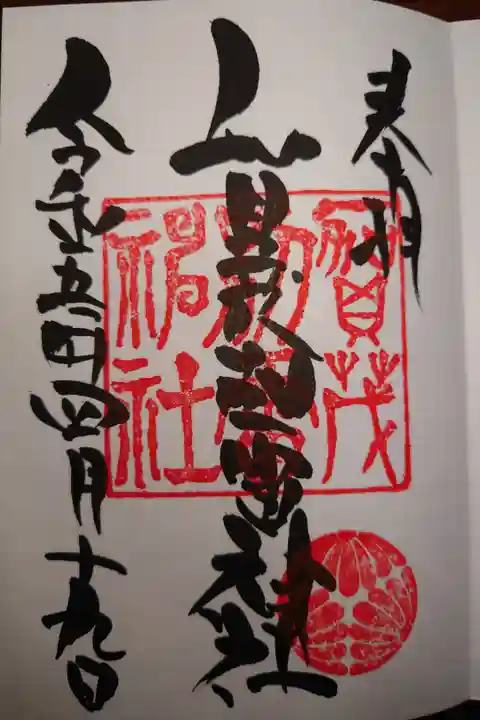 奉拝
賀茂別雷神社
令和五年四月十九日
賀茂
別雷
神社